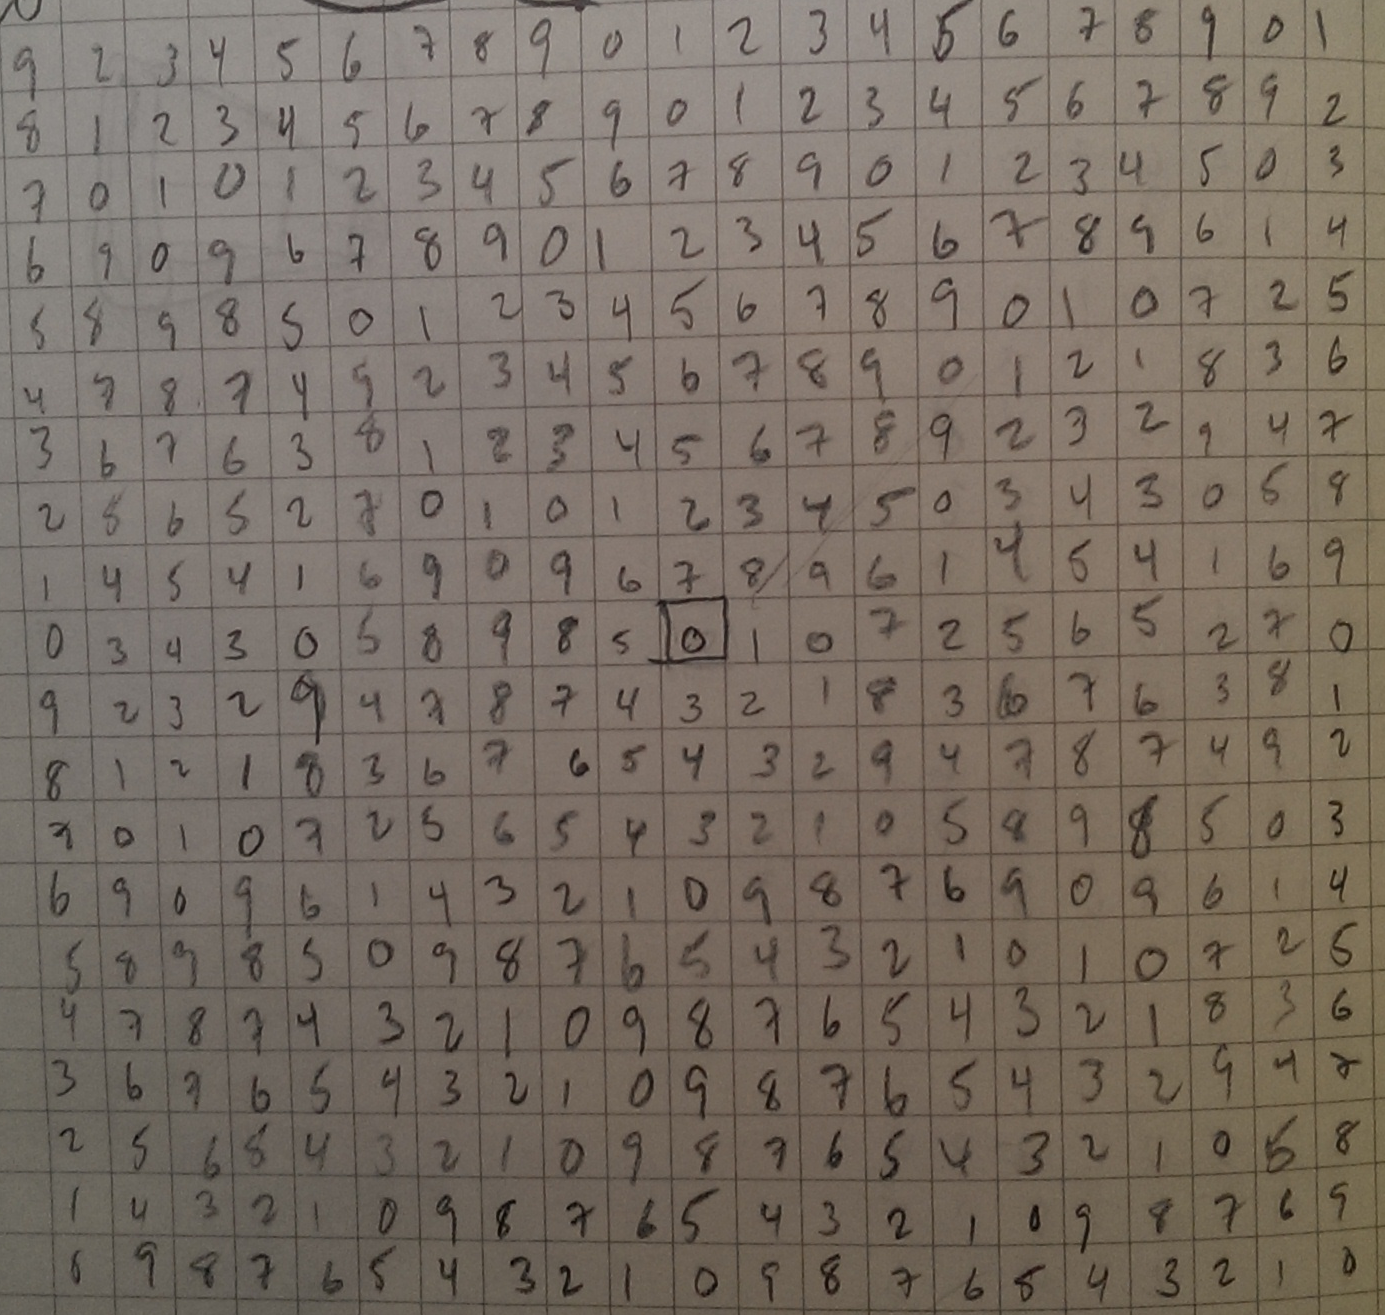 9 2 3 4 5 6 7 8 9 0 1 2 3 4 5 6 7 8 9 0 1
8 1 2 3 4 5 6 7 8 9 0 1 2 3 4 5 6 7 8 9 2
7 0 1 0 1 2 3 4 5 6 7 8 9 0 1 2 3 4 5 0 3
6 9 0 9 6 7 8 9 0 1 2 3 4 5 6 7 8 9 6 1 4
5 8 9 8 5 0 1 2 3 4 5 6 7 8 9 0 1 0 7 2 5
4 7 8 7 4 9 2 3 4 5 6 7 8 9 0 1 2 1 8 3 6
3 6 7 6 3 8 1 2 3 4 5 6 7 8 9 2 3 2 9 4 7
2 5 6 5 2 7 0 1 0 1 2 3 4 5 0 3 4 3 0 5 8
1 4 5 4 1 6 9 0 9 6 7 8 9 6 1 4 5 4 1 6 9
0 3 4 3 0 5 8 9 8 5 0 1 0 7 2 5 6 5 2 7 0
9 2 3 2 9 4 7 8 7 4 3 2 1 8 3 6 7 6 3 8 1
8 1 2 1 8 3 6 7 6 5 4 3 2 9 4 7 8 7 4 9 2
7 0 1 0 7 2 5 6 5 4 3 2 1 0 5 8 9 8 5 0 3
6 9 0 9 6 1 4 3 2 1 0 9 8 7 6 9 0 9 6 1 4
5 8 9 8 5 0 9 8 7 6 5 4 3 2 1 0 1 0 7 2 5
4 7 8 7 4 3 2 1 0 9 8 7 6 5 4 3 2 1 8 3 6
3 6 7 6 5 4 3 2 1 0 9 8 7 6 5 4 3 2 9 4 7
2 5 6 5 4 3 2 1 0 9 8 7 6 5 4 3 2 1 0 5 8
1 4 3 2 1 0 9 8 7 6 5 4 3 2 1 0 9 8 7 6 9
0 9 8 7 6 5 4 3 2 1 0 9 8 7 6 5 4 3 2 1 0